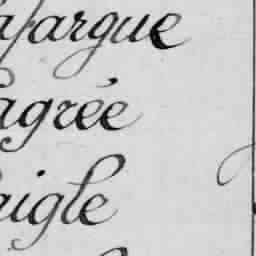 afargue
agrée
aigle